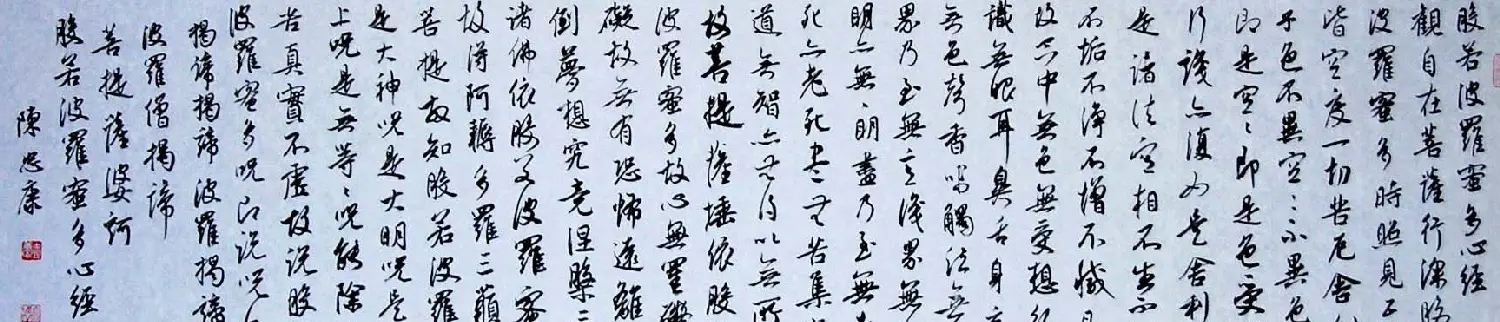 般若波羅蜜多心經
觀自在菩薩行深般
波羅蜜多時照見五
皆空度一切苦厄舍
子色不異空〻不異色
即是空〻即是色受
行識亦復如是舍利
是諸法空相不生不
不垢不淨不增不減
故空中無色無受想
識無眼耳鼻舌身
無色聲香味觸法無
界乃至無意識界無
明亦無〻明盡乃至無
死亦老死盡无苦集
道無智亦無得以無所
故菩提薩埵依般
波羅蜜多故心無罣礙
礙故無有恐怖遠離
倒夢想究竟涅槃三
諸佛依般若波羅蜜
故得阿耨多羅三藐
菩提故知般若波羅
是大神咒是大明咒是
上咒是無等〻咒能除
苦真實不虛故說般
波羅蜜多咒即說咒
揭諦揭諦波羅揭諦
波羅僧揭諦
菩提薩婆訶
般若波羅蜜多心經
陳忠康